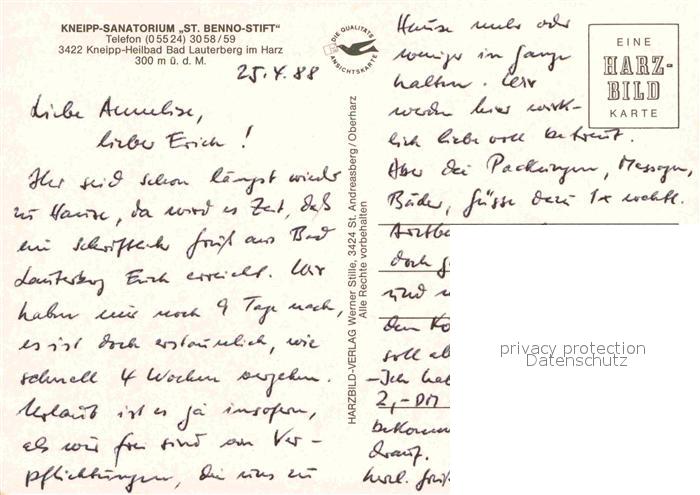 KNEIPP-SANATORIUM „ST. BENNO-STIFT"
Telefon (0 55 24) 30 58 / 59
3422 Kneipp-Heilbad Bad Lauterberg im Harz
300 m ü. d. M.
25.4.88
Liebe Annelise,
lieber Erich!
Ihr seid schon längst wieder
zu Hause, da wird es Zeit, daß
ein schriftlicher Gruß aus Bad
Lauterberg Euch erreicht. Wir
haben nur noch 9 Tage nach,
es ist doch erstaunlich, wie
schnell 4 Wochen vergehen.
Urlaub ist es ja insofern,
als wir frei sind von Ver-
pflichtungen, die uns zu
DIE QUALITÄTS
ANSICHTSKARTE
HARZBILD-VERLAG Werner Stille, 3424 St. Andreasberg / Oberharz
Alle Rechte vorbehalten
Hause mehr oder
weniger in Gange
halten. Wir
werden hier wirk-
lich liebevoll betreut.
Aber die Packungen, Massagen,
Bäder, Güsse dazu 1x wchtl.
Arztbe
doch g
und
den Ko
soll ab
- Ich hab
2,- DM
bekomm
drauf.
herzl. Grüß
EINE
HARZ-
BILD
KARTE
privacy protection
Datenschutz